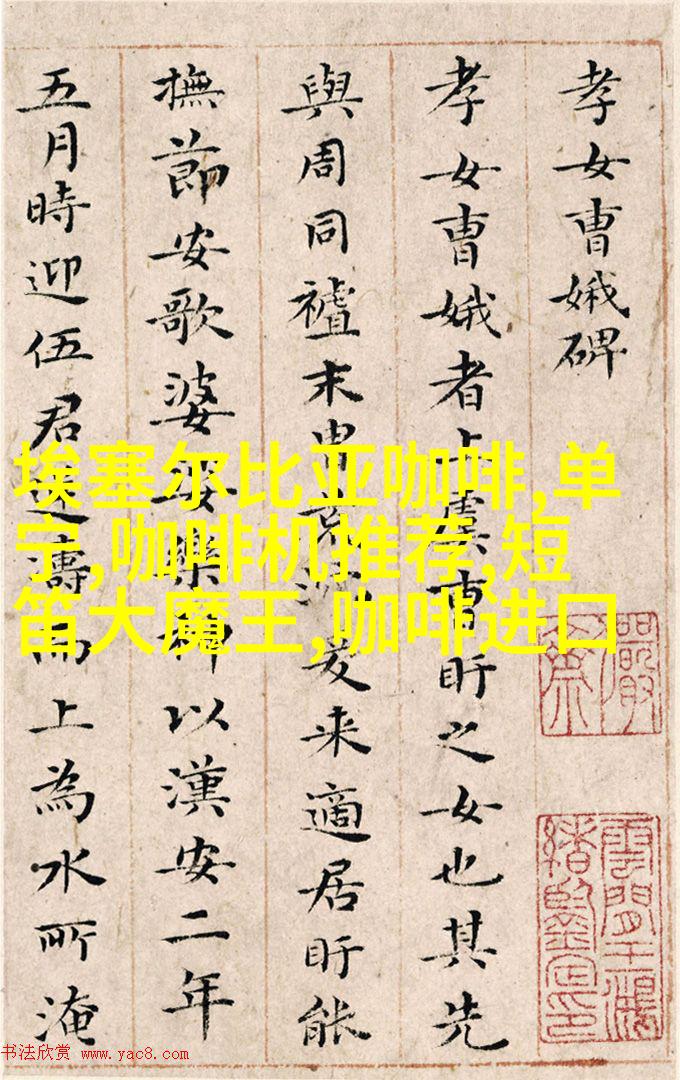 孝女曹娥碑
孝女曹娥者上虞曹盱之女也其先
與周同末胄荒沉爰来適居盱能
撫節安歌婆娑樂神以漢安二年
五月時迎伍君逆濤而上為水所淹
埃塞尔比亚咖啡,单
宁,咖啡机推荐,短
笛大魔王,咖啡进口
雲間王鴻
緒鑒定印
书法欣赏 www.yac8.com